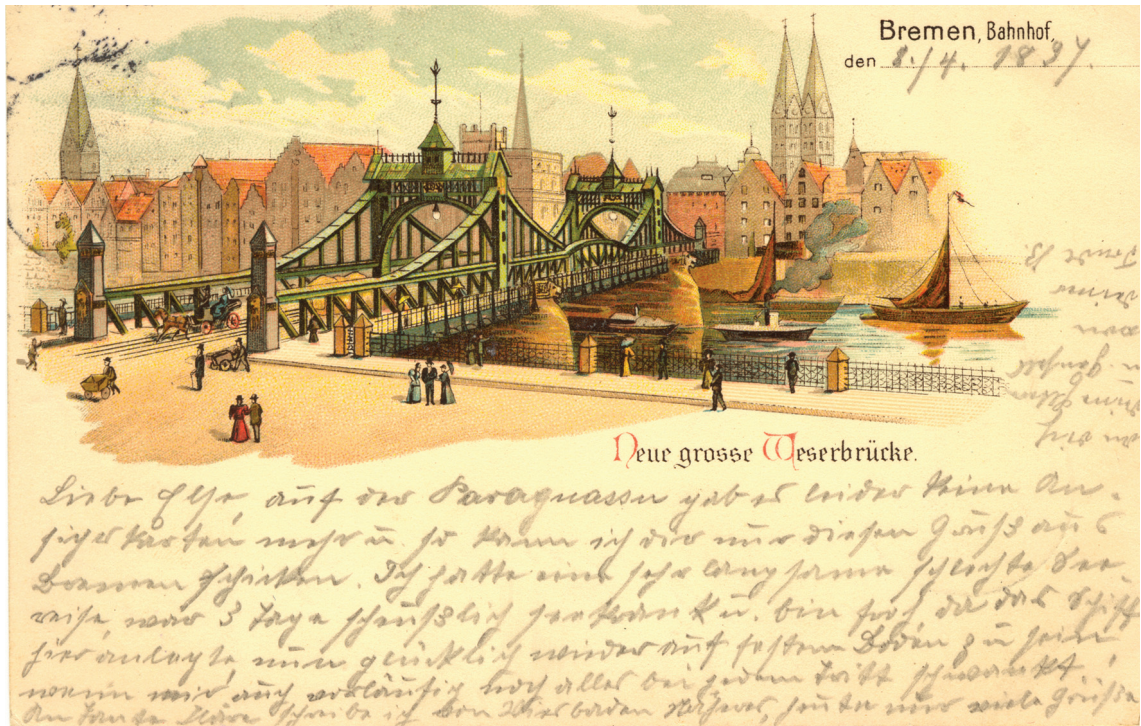 Bremen, Bahnhof,
den 8./4. 1897.
Neue grosse Weserbrücke.
Liebe Else, auf der Paraguassu gab es leider keine An-
sichtkarten mehr u. so kann ich dir nur diesen Gruß aus
Bremen schicken. Ich hatte eine sehr langsame schlechte See-
reise, war 3 Tage scheußlich seekrank u. bin froh da das Schiff
hier anlegte, nun glücklich wieder auf festem Boden zu sein,
wenn mir auch vorläufig noch alles bei jedem Tritt schwankt.
An Tante Kläre schreibe ich von Wiesbaden Näheres, heute nur viele Grüße